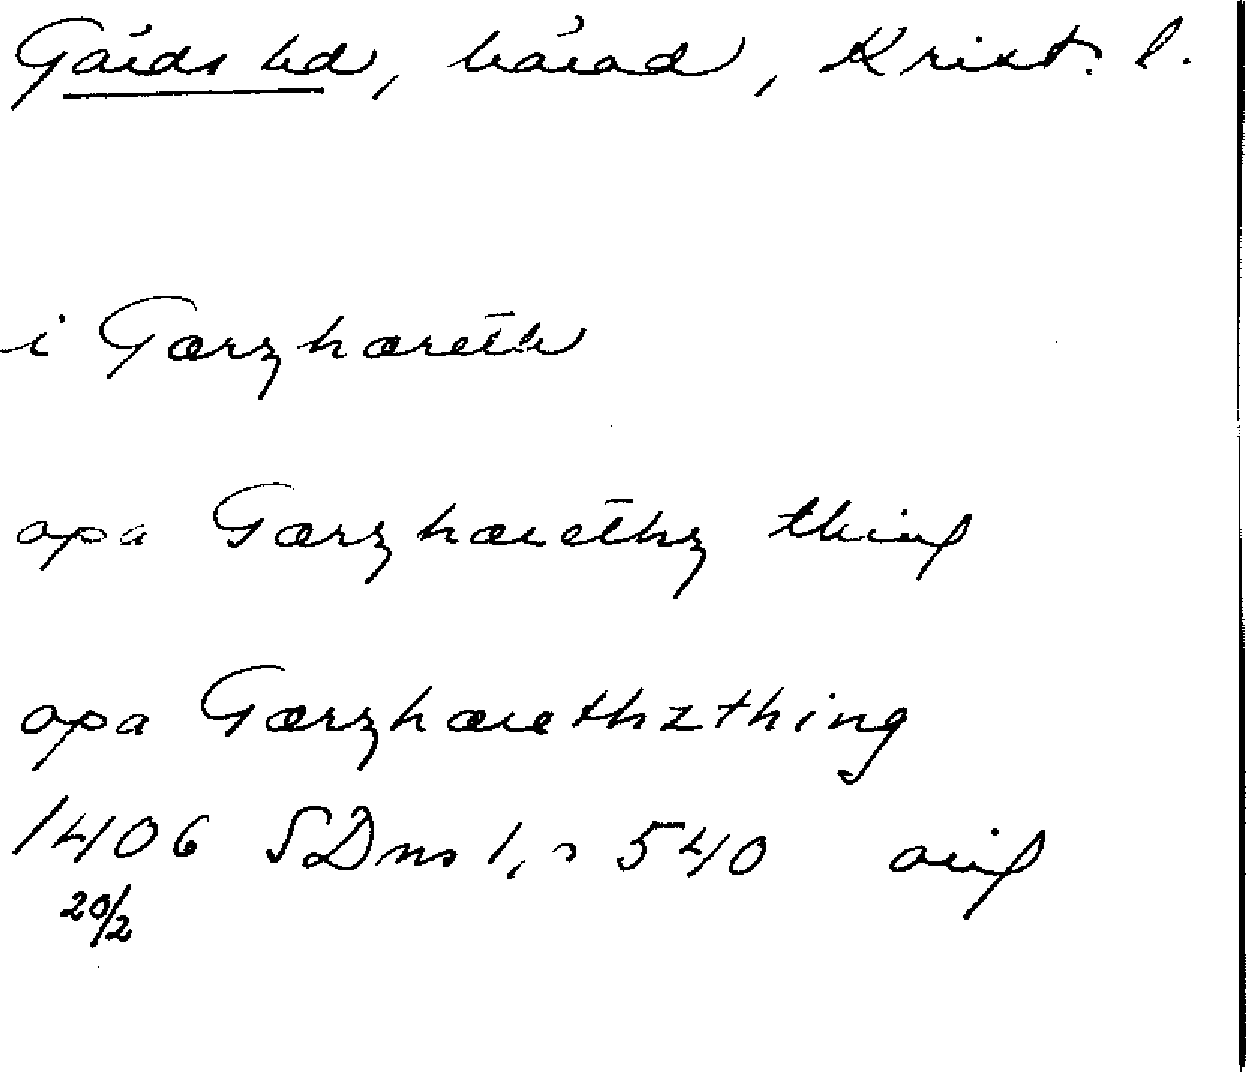 Gärds hd, härad, Krist. l.
i Gærzhæreth
opa Gærzhærethz thing
opa Gærzhærethzthing
1406 SDns 1, s 540 orig
20/2